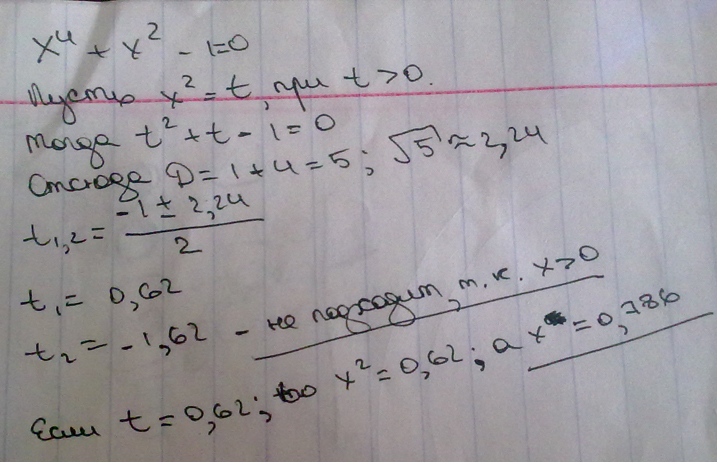 x⁴ + x² - 1=0
Пусть x² = t, при t > 0.
тогда t² + t - 1 = 0
Отсюда D = 1 + 4 = 5; √5 ≈ 2,24
t₁,₂ = (-1 ± 2,24)/2
t₁ = 0,62
t₂ = -1,62 - не подходит, т.к. x > 0
Если t = 0,62; то x² = 0,62; а x = 0,786